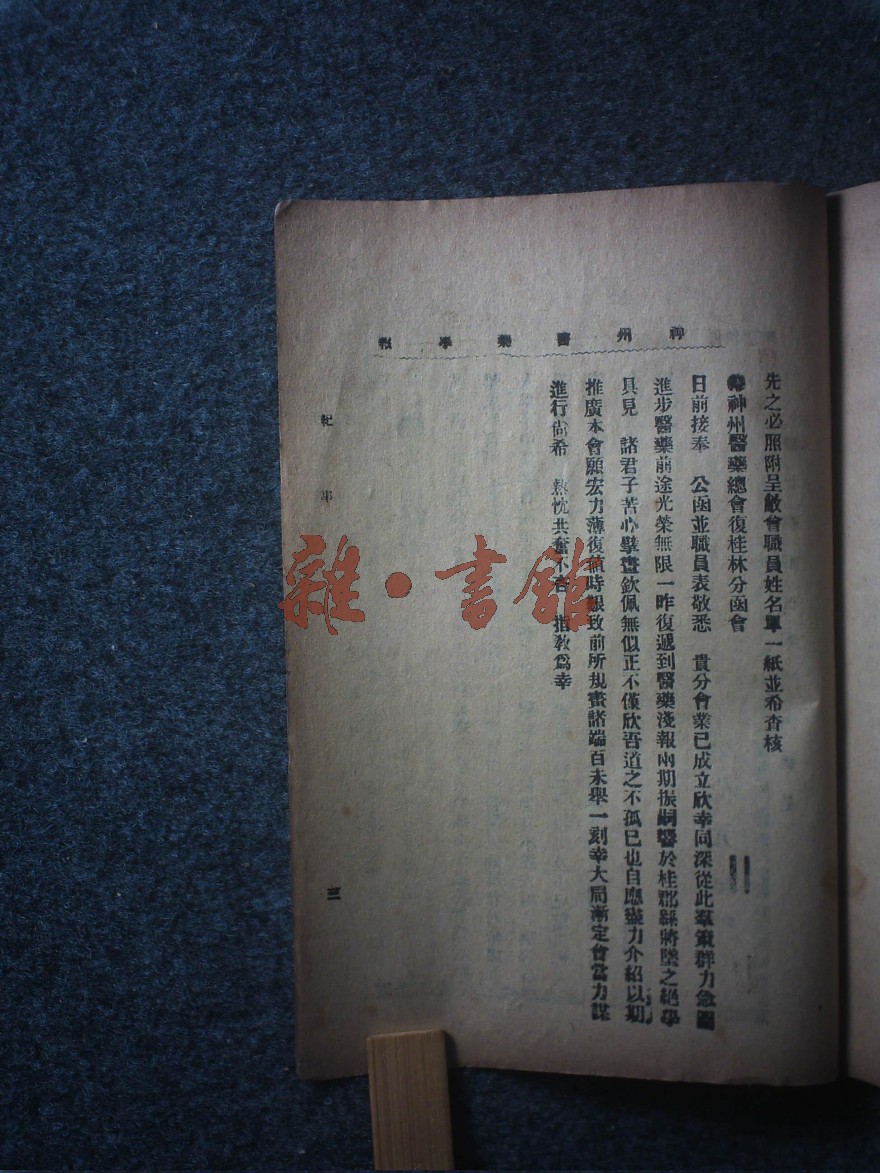 神州醫藥學報
先之必照附呈敝會職員姓名單一紙並希查核
神州醫藥總會復桂林分函會
日前接奉 公函並職員表敬悉 貴分會業已成立欣幸同深從此羣策群力急圖
進步醫藥前途光榮無限一昨復遞到醫藥淺報兩期振嗣醫於桂郡緜將墜之絕學
具見 諸君子苦心擘畫欽佩無似正不僅欣吾道之不孤已也自應盡力介紹以期
推廣本會願宏力薄復値時艱致前所規畫諸端百未舉一刻幸大局漸定會當力謀
進行尙希 熱忱共奮不吝 指敎爲幸
紀事
三
雜·書館